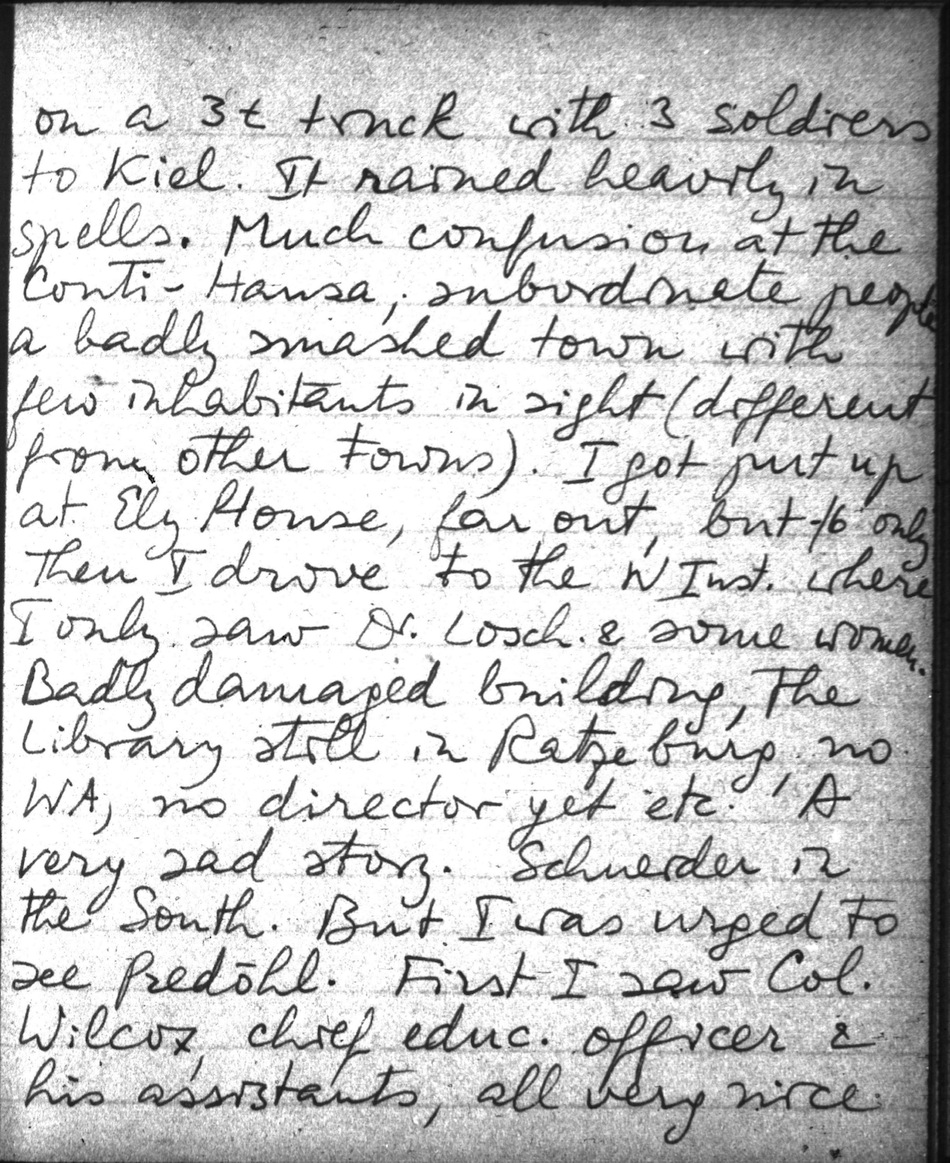 on a 3t truck with 3 soldiers
to Kiel. It rained heavily in
spells. Much confusion at the
Conti-Hansa, subordinate people
a badly smashed town with
few inhabitants in sight (different
from other towns). I got put up
at Ely House, far out, but only
Then I drove to the W Inst. where
I only saw Dr. Losch & some women.
Badly damaged building, the
Library still in Ratzeburg, no
WA, no director yet etc. A
very sad story. Schneider in
the South. But I was urged to
see Predöhl. First I saw Col.
Wilcox, chief educ. officer &
his assistants, all very nice